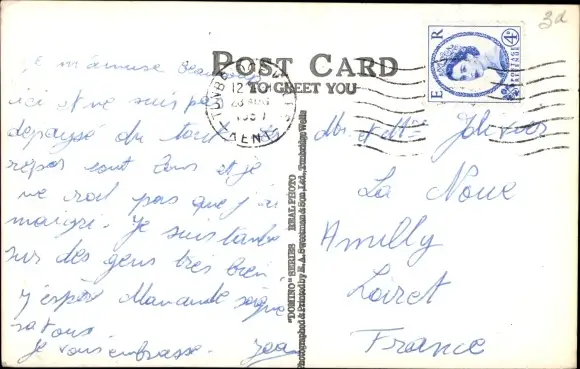 3d
POST CARD
TO GREET YOU
E R
4D
POSTAGE
REVENUE
TUNBRIDGE WELLS
12
28 AUG
195
KENT
Je m'amuse beaucoup
ici et ne suis pas
dépaysé du tout
repas sont bons et je
ne crois pas que j'ai
maigri. Je suis tombé
sur des gens très bien.
j'espère Maman de soigne
ra tous
je vous embrasse. Jean
Mr. et Mme
La Noue
Amilly
Loiret
France
"DOMINO" SERIES REAL PHOTO
Photographed & Printed by E. A. Sweetman & Son, Ltd., Tunbridge Wells